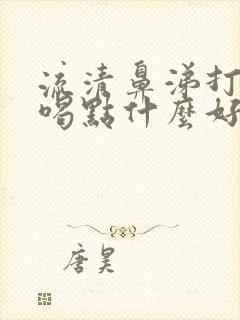 流清鼻涕打
喝點什麼好
唐昊